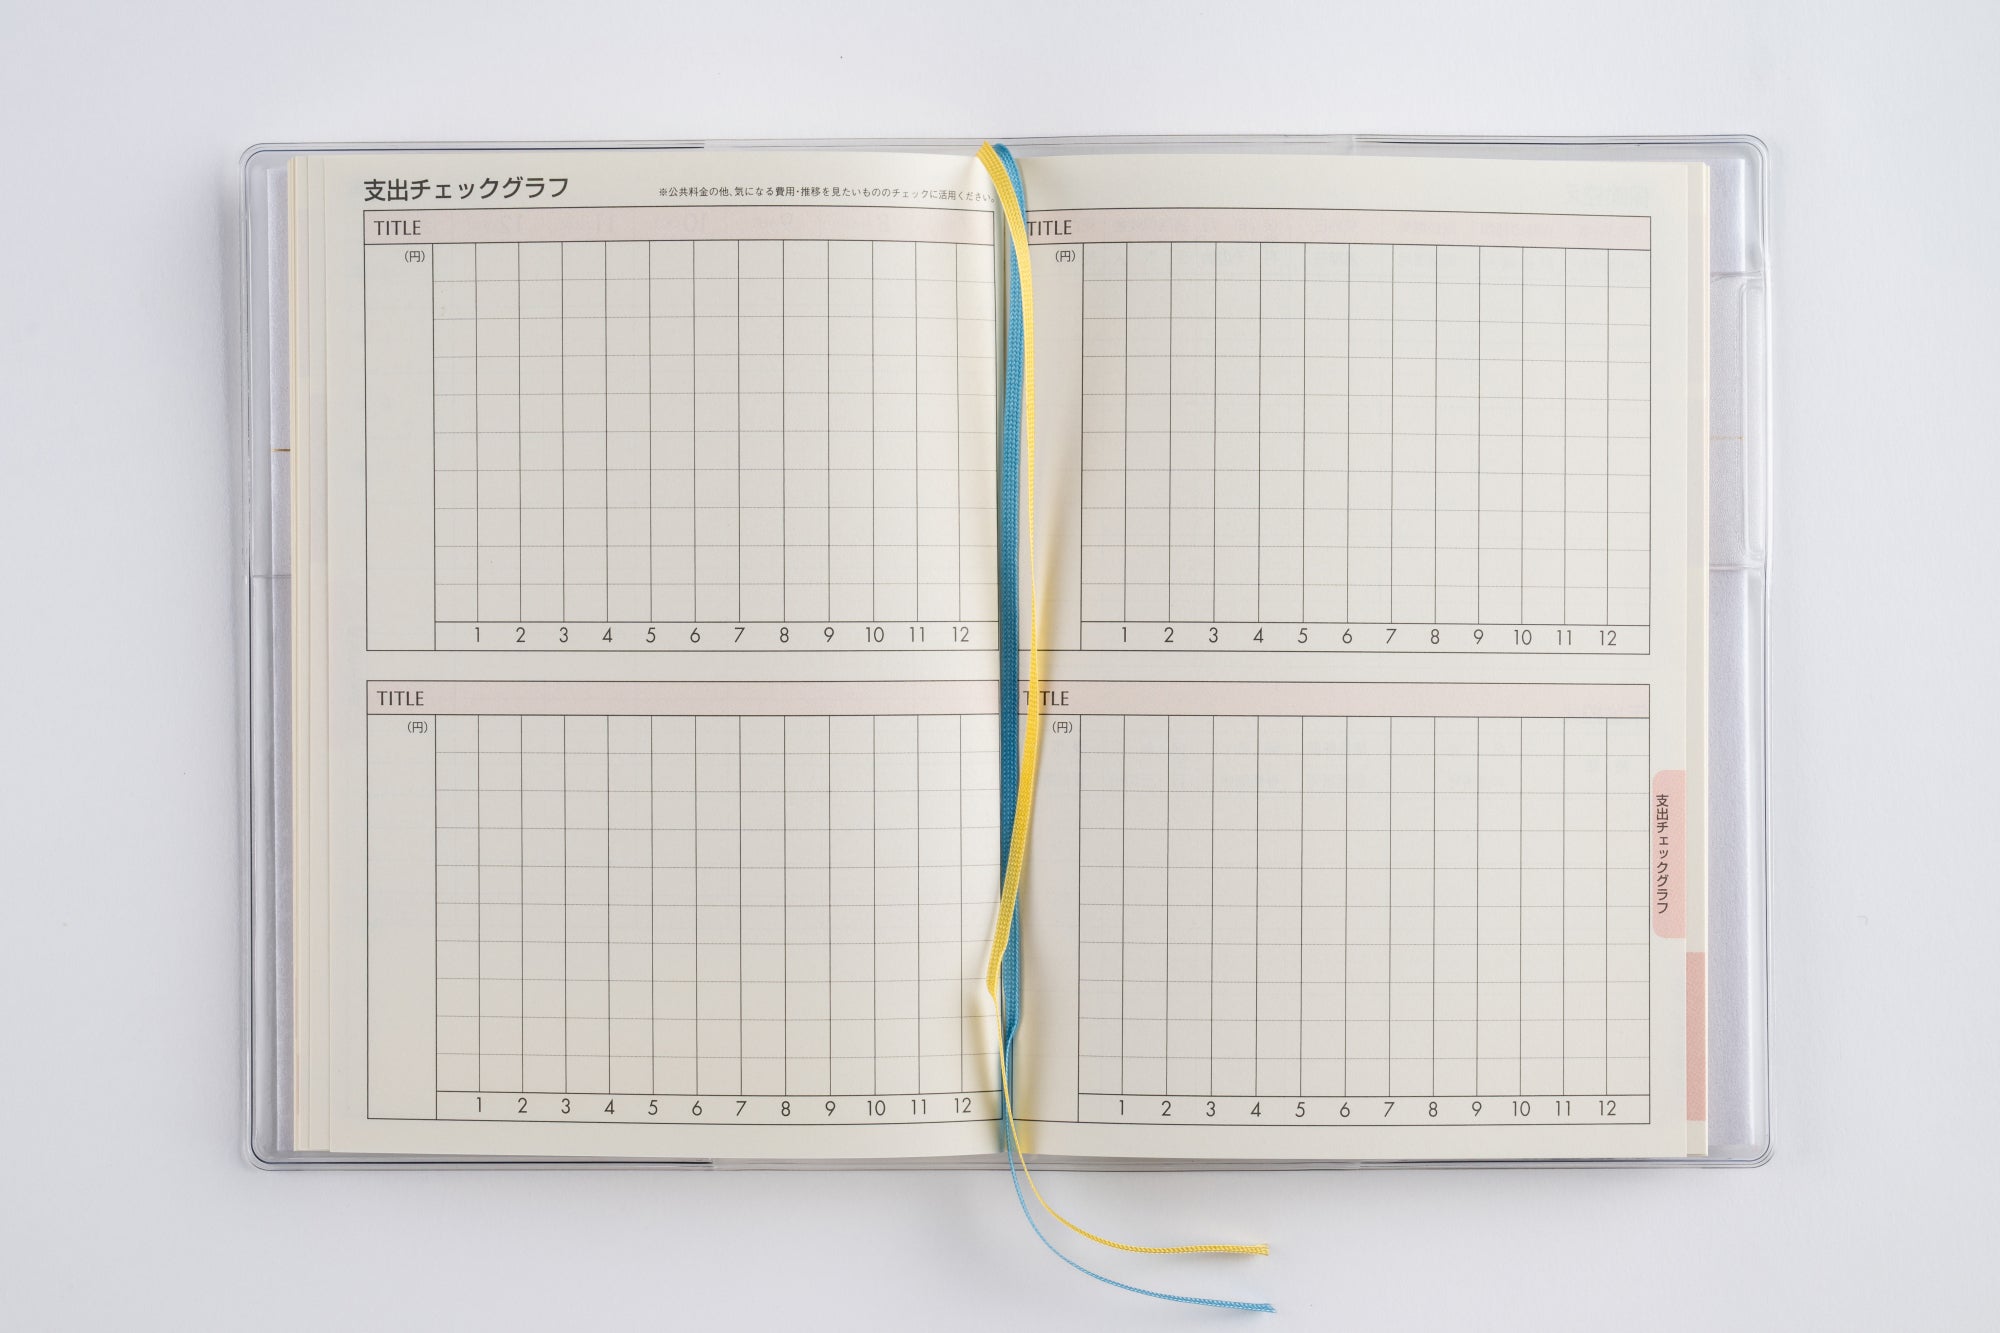 支出チェックグラフ
※公共料金の他、気になる費用・推移を見たいもののチェックに活用ください。
TITLE
(円)
1 2 3 4 5 6 7 8 9 10 11 12
TITLE
(円)
1 2 3 4 5 6 7 8 9 10 11 12
TITLE
(円)
1 2 3 4 5 6 7 8 9 10 11 12
TITLE
(円)
1 2 3 4 5 6 7 8 9 10 11 12
支出チェックグラフ